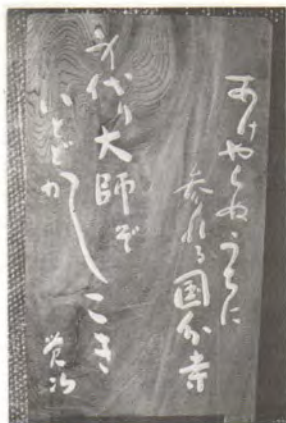 あけやらぬうちに
参れる国分寺
身代り大師ぞ
いとどかしこき